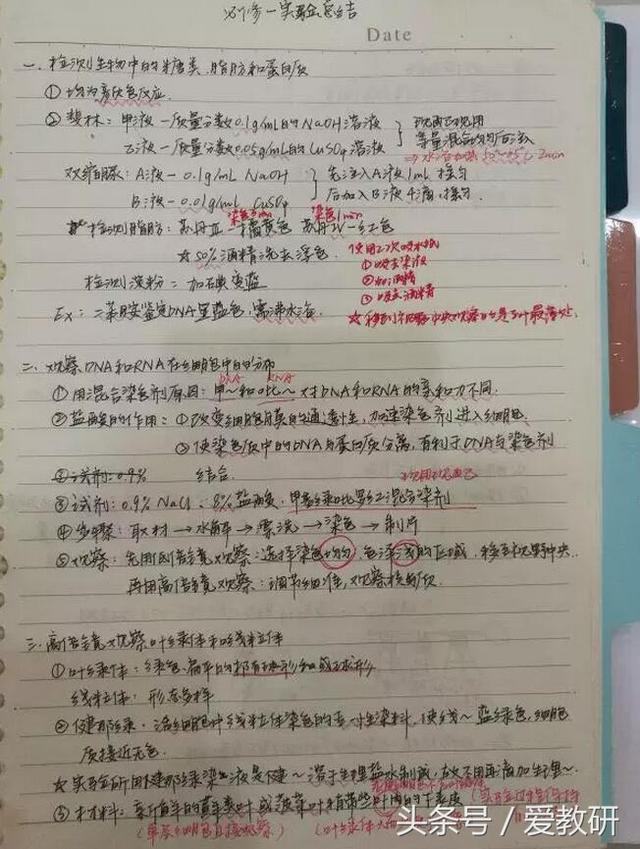 必修一实验总结
Date
一、检测生物中的糖类、脂肪和蛋白质
①均为颜色反应.
②斐林:甲液—质量分数0.1g/mL的NaOH溶液 现配现用
乙液—质量分数0.05g/mL的CuSO4溶液 等量混合均匀后注入
⇒水浴加热 2min
双缩脲:A液—0.1g/mL NaOH 先注入A液1mL摇匀
B液—0.01g/mL CuSO4 后加入B液4滴,摇匀.
染色3min 染色1min
检测脂肪:苏丹Ⅲ—橘黄色 苏丹Ⅳ—红色
☆50%酒精洗去浮色. 使用2次吸水纸
①吸去染液
检测淀粉=加碘变蓝 ②加酒精
③吸去酒精
Ex:二苯胺鉴定DNA呈蓝色,需沸水浴.
☆移到视野中央观察的是叶最薄处.
二、观察DNA和RNA在细胞中的分布
DNA RNA
①用混合染色剂原因:甲~和吡~对DNA和RNA的亲和力不同.
②盐酸的作用:①改变细胞膜的通透性,加速染色剂进入细胞.
②使染色质中的DNA与蛋白质分离,有利于DNA与染色剂
③试剂:0.9% 结合.
现用现配
③试剂:0.9% NaCl、8%盐酸、甲基绿吡罗红混合染剂
④步骤:取材→水解→漂洗→染色→制片
⑤观察:先用低倍镜观察:选择染色均匀,色泽浅的区域,移至视野中央
再用高倍镜观察:调节细准,观察核质
三、高倍镜观察叶绿体和线粒体
①叶绿体:绿色、扁平的椭球形或球形
线粒体:形态多样
②健那绿:活细胞中线粒体染色的专一性染料,使线~蓝绿色,细胞
质接近无色.
☆实验所用健那绿染液是健~溶于生理盐水制成,故不用再滴加生理~
③材料:新鲜的藓类叶或菠菜叶稍带些叶肉的下表皮
(单层细胞直接观察) (叶绿体大
头条号 / 爱教研